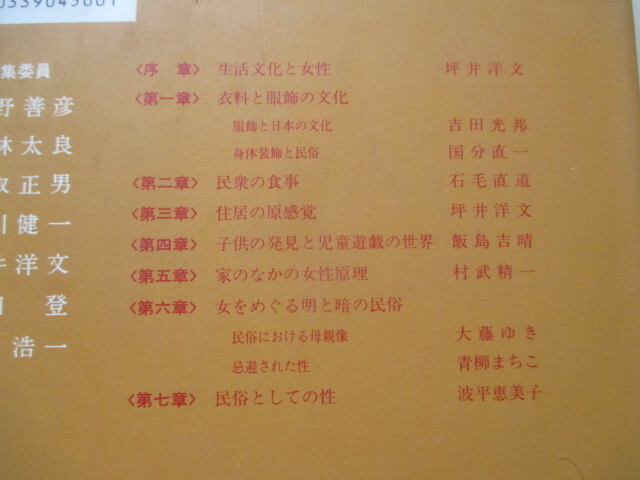 0339045001
集委員
野善彦
林太良
取正男
川健一
井洋文
登
浩一
〈序　章〉　生活文化と女性　坪井洋文
〈第一章〉　衣料と服飾の文化
服飾と日本の文化　吉田光邦
身体装飾と民俗　国分直一
〈第二章〉　民衆の食事　石毛直道
〈第三章〉　住居の原感覚　坪井洋文
〈第四章〉　子供の発見と児童遊戯の世界　飯島吉晴
〈第五章〉　家のなかの女性原理　村武精一
〈第六章〉　女をめぐる明と暗の民俗
民俗における母親像　大藤ゆき
忌避された性　青柳まちこ
〈第七章〉　民俗としての性　波平恵美子